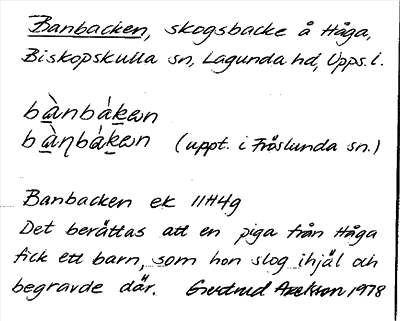 Banbacken, skogsbacke å Håga,
Biskopskulla sn, Lagunda hd, Upps. l.
bànbákən
bàṇbákən (uppt. i Fröslunda sn.)
Banbacken ek 11H4g
Det berättas att en piga från Håga
fick ett barn, som hon slog ihjäl och
begravde där. Gertrud Axelsson 1978